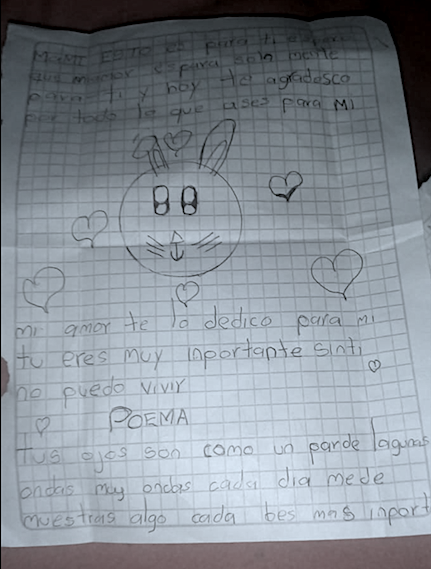 MAMI ESTO es para ti
para sola mente
para ti y hoy te agradesco
por todo lo que ases para MI
mi amor te lo dedico para mi
tu eres muy inportante sinti
no puedo vivir
POEMA
Tus ojos son como un parde lagunas
ondas muy ondas cada dia mede
muestras algo cada bes mas inport